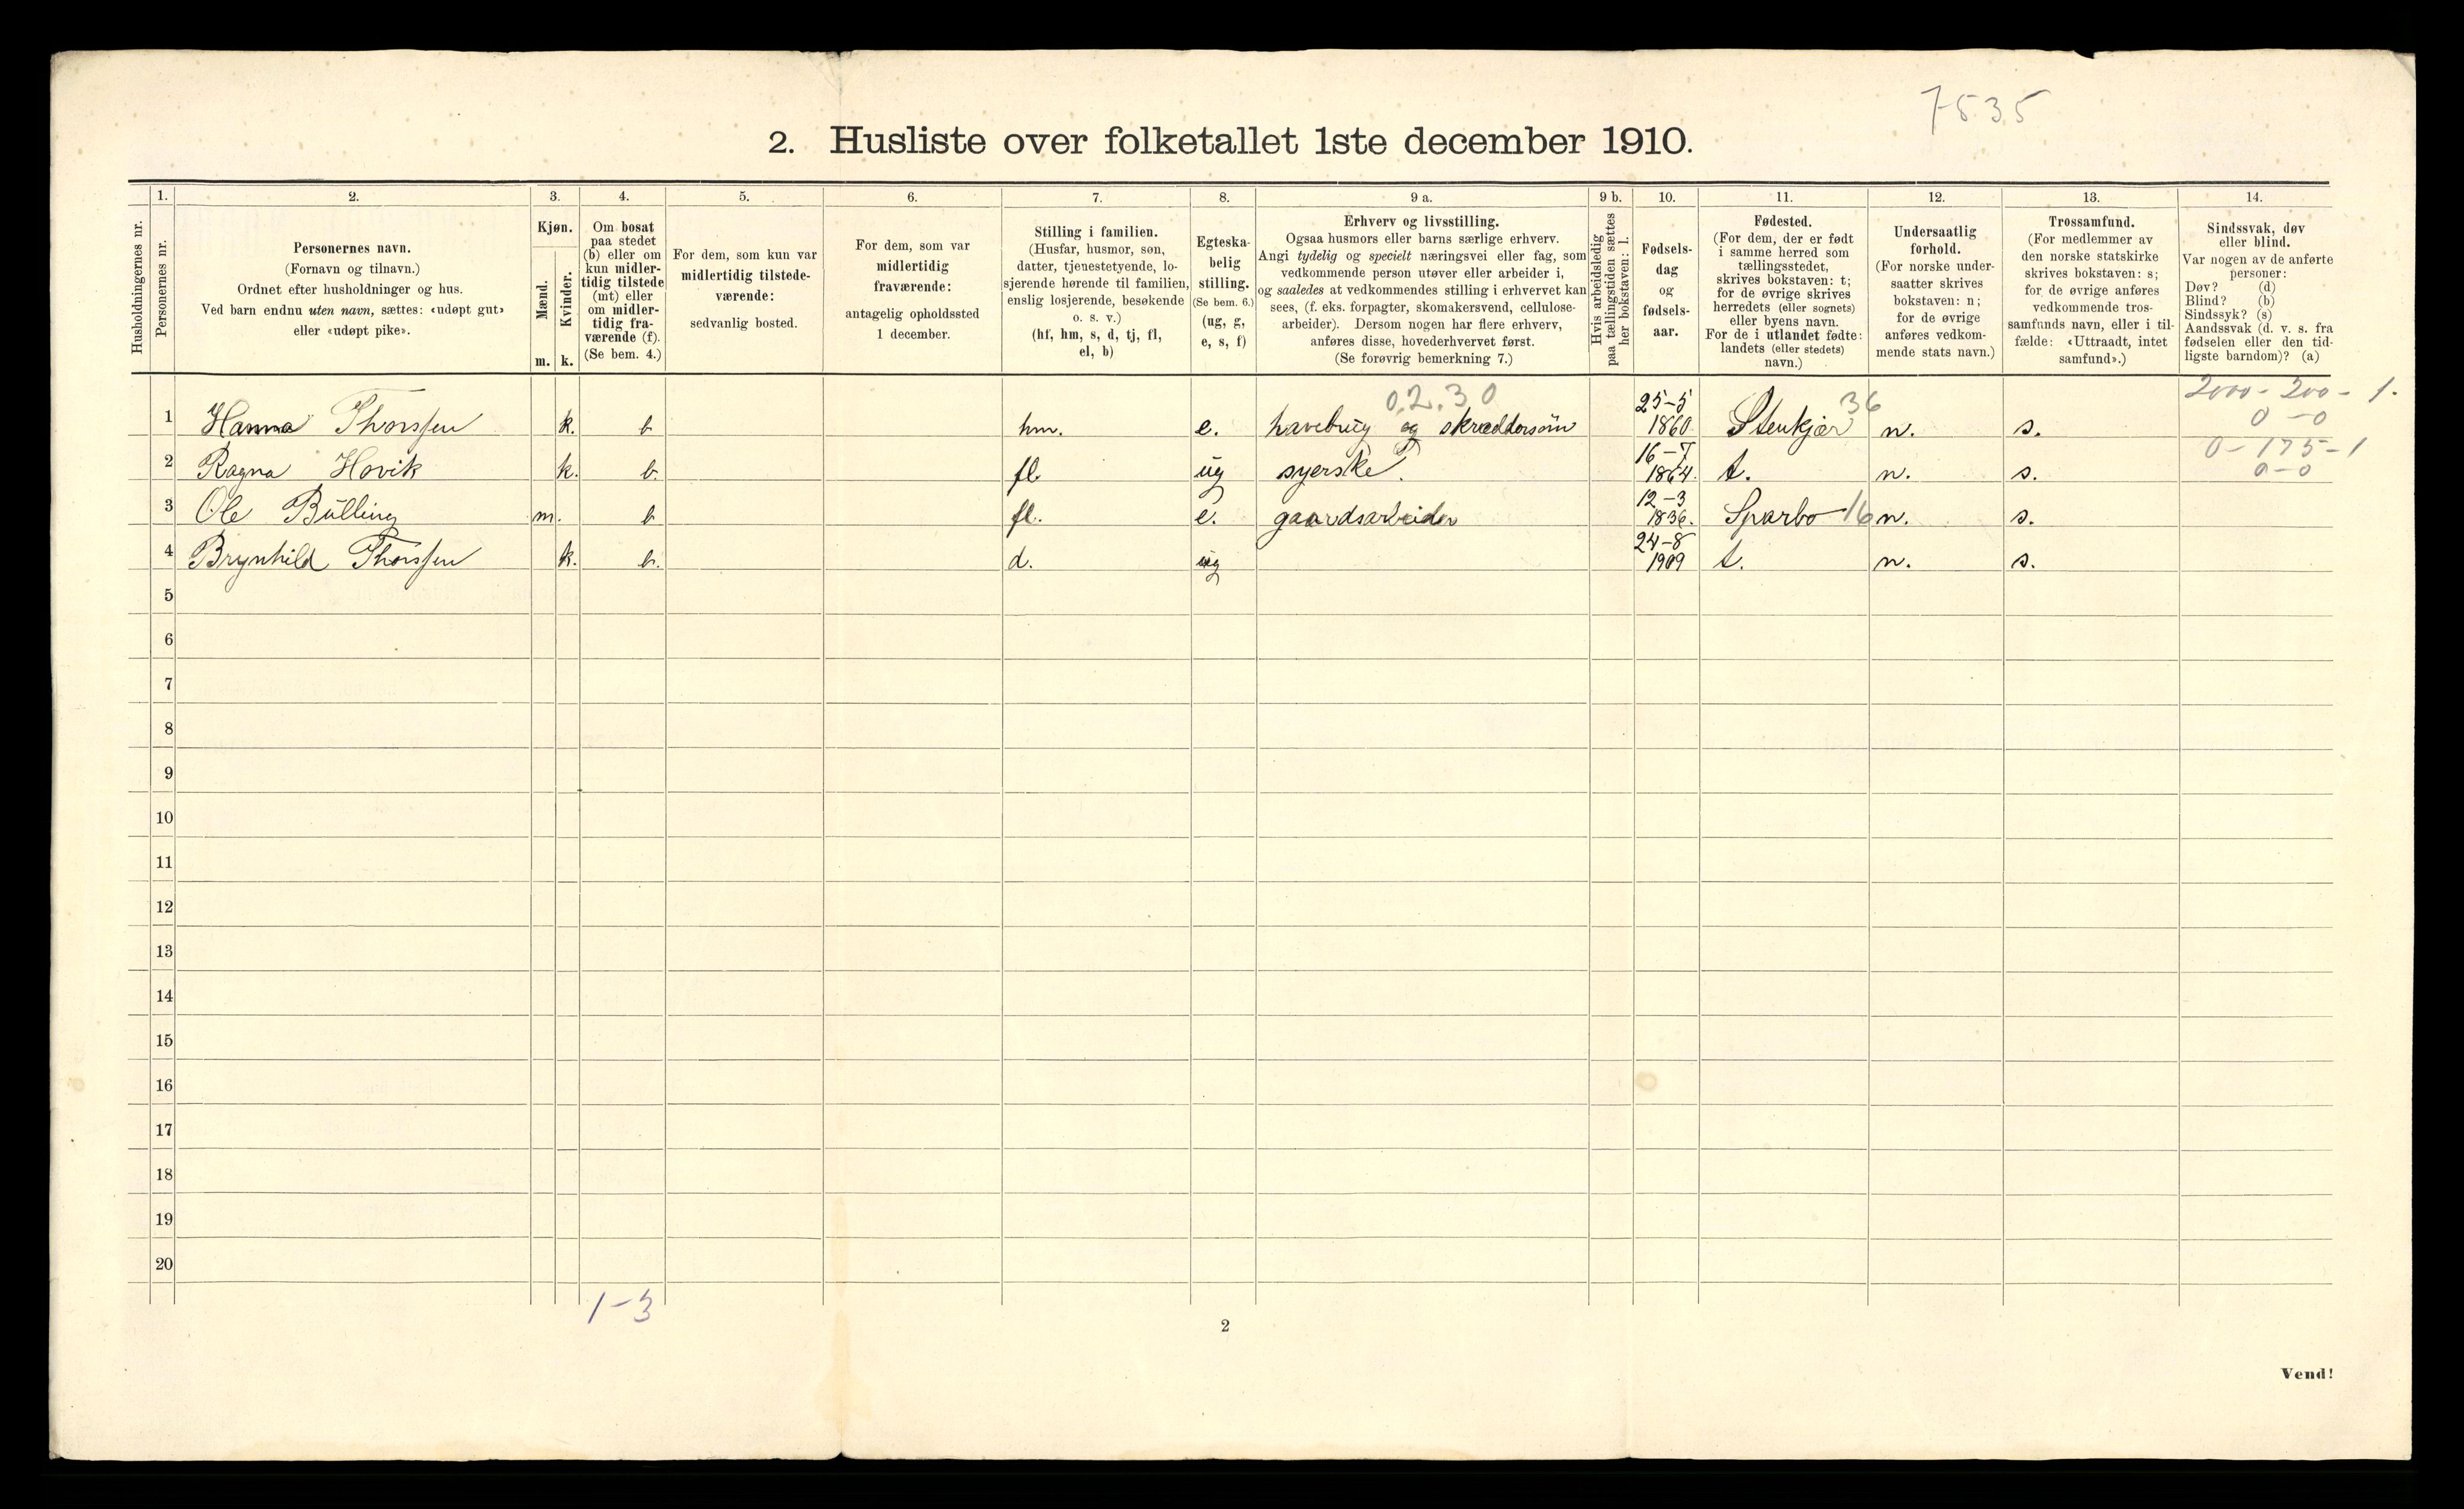 7535
2. Husliste over folketallet 1ste december 1910.
Husholdningernes nr.
1. Personernes nr.
2. Personernes navn.
(Fornavn og tilnavn.)
Ordnet efter husholdninger og hus.
Ved barn endnu uten navn, sættes: «udøpt gut»
eller «udøpt pike».
3. Kjøn.
Mænd. m.
Kvinder. k.
4. Om bosat
paa stedet
(b) eller om
kun midler-
tidig tilstede
(mt) eller
om midler-
tidig fra-
værende (f).
(Se bem. 4.)
5. For dem, som kun var
midlertidig tilstede-
værende:
sedvanlig bosted.
6. For dem, som var
midlertidig
fraværende:
antagelig opholdssted
1 december.
7. Stilling i familien.
(Husfar, husmor, søn,
datter, tjenestetyende, lo-
sjerende hørende til familien,
enslig losjerende, besøkende
o. s. v.)
(hf, hm, s, d, tj, fl,
el, b)
8. Egteska-
belig
stilling.
(Se bem. 6.)
(ug, g,
e, s, f)
9 a. Erhverv og livsstilling.
Ogsaa husmors eller barns særlige erhverv.
Angi tydelig og specielt næringsvei eller fag, som
vedkommende person utøver eller arbeider i,
og saaledes at vedkommendes stilling i erhvervet kan
sees, (f. eks. forpagter, skomakersvend, cellulose-
arbeider). Dersom nogen har flere erhverv,
anføres disse, hovederhvervet først.
(Se forøvrig bemerkning 7.)
9 b. Hvis arbeidsledig
paa tællingstiden sættes
her bokstaven: l.
10. Fødsels-
dag
og
fødsels-
aar.
11. Fødested.
(For dem, der er født
i samme herred som
tællingsstedet,
skrives bokstaven: t;
for de øvrige skrives
herredets (eller sognets)
eller byens navn.
For de i utlandet fødte:
landets (eller stedets)
navn.)
12. Undersaatlig
forhold.
(For norske under-
saatter skrives
bokstaven: n;
for de øvrige
anføres vedkom-
mende stats navn.)
13. Trossamfund.
(For medlemmer av
den norske statskirke
skrives bokstaven: s;
for de øvrige anføres
vedkommende tros-
samfunds navn, eller i til-
fælde: «Uttraadt, intet
samfund».)
14. Sindssvak, døv
eller blind.
Var nogen av de anførte
personer:
Døv? (d)
Blind? (b)
Sindssyk? (s)
Aandssvak (d. v. s. fra
fødselen eller den tid-
ligste barndom)? (a)
0.2.30 25-5 36 2000 - 200 - 1.
1 Hanna Thorssen k. b hm. e. havebrug og skræddersøm 1860. Stenkjær n. s. 0 - 0
16-7 0 - 175 - 1
2 Ragna Hovik k. b. fl. ug syerske. 1864. t. n. s. 0 - 0
12-3
3 Ole Bülling m. b fl. e. gaardsarbeider 1836. Sparbo 16 n. s.
24-8
4 Brynhild Thorssen k. b. d. ug 1909 t. n. s.
5
6
7
8
9
10
11
12
13
14
15
16
17
18
19
20
1-3
2
Vend!